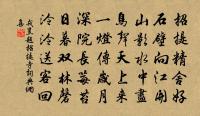 招提精舍好
石壁向江開
山影水中盡
鳥聲天上來
一燈傳歲月
深院長莓苔
日暮雙林磬
泠泠送客回
戎昱題招提寺詞典網
喜